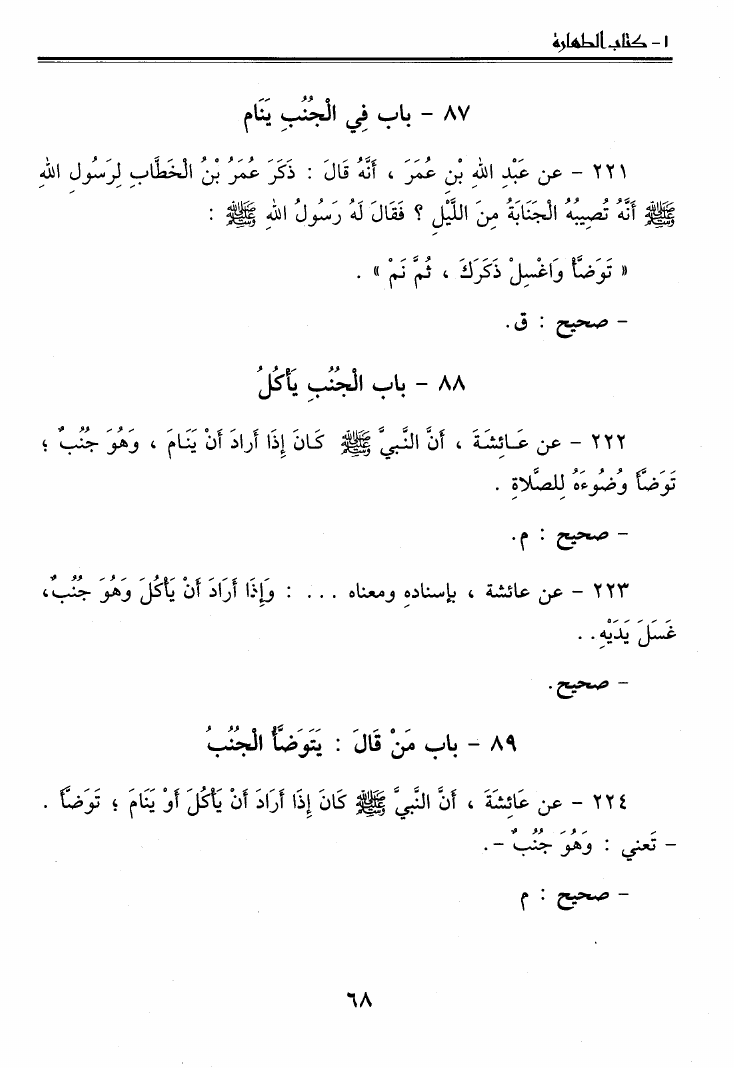 ١ - كتاب الطهارة
٨٧ - باب فِي الْجُنُبِ يَنَام
٢٢١ - عن عَبْدِ اللهِ بْنِ عُمَرَ ، أَنَّهُ قَالَ : ذَكَرَ عُمَرُ بْنُ الْخَطَّابِ لِرَسُولِ اللهِ
ﷺ أَنَّهُ تُصِيبُهُ الْجَنَابَةُ مِنَ اللَّيْلِ ؟ فَقَالَ لَهُ رَسُولُ اللهِ ﷺ :
« تَوَضَّأْ وَاغْسِلْ ذَكَرَكَ ، ثُمَّ نَمْ » .
- صحيح : ق.
٨٨ - باب الْجُنُبِ يَأْكُلُ
٢٢٢ - عن عَائِشَةَ ، أَنَّ النَّبِيَّ ﷺ كَانَ إِذَا أَرَادَ أَنْ يَنَامَ ، وَهُوَ جُنُبٌ ؛
تَوَضَّأَ وُضُوءَهُ لِلصَّلاةِ .
- صحيح : م.
٢٢٣ - عن عائشة ، بإسنادهِ ومعناه ... : وَإِذَا أَرَادَ أَنْ يَأْكُلَ وَهُوَ جُنُبٌ،
غَسَلَ يَدَيْهِ. .
- صحيح.
٨٩ - باب مَنْ قَالَ : يَتَوَضَّأُ الْجُنُبُ
٢٢٤ - عن عَائِشَةَ ، أَنَّ النَّبِيَّ ﷺ كَانَ إِذَا أَرَادَ أَنْ يَأْكُلَ أَوْ يَنَامَ ؛ تَوَضَّأَ .
- تَعني : وَهُوَ جُنُبٌ -.
- صحيح : م
٦٨